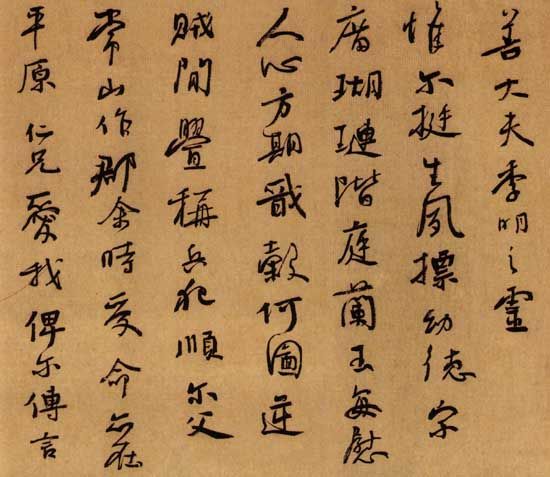 善大夫季明之靈
惟尔挺生夙標幼德宗
庿瑚璉階庭蘭玉每慰
人心方期戩穀何圖逆
賊閒舋稱兵犯順尔父
常山作郡余時受命亦在
平原仁兄愛我俾尔傳言